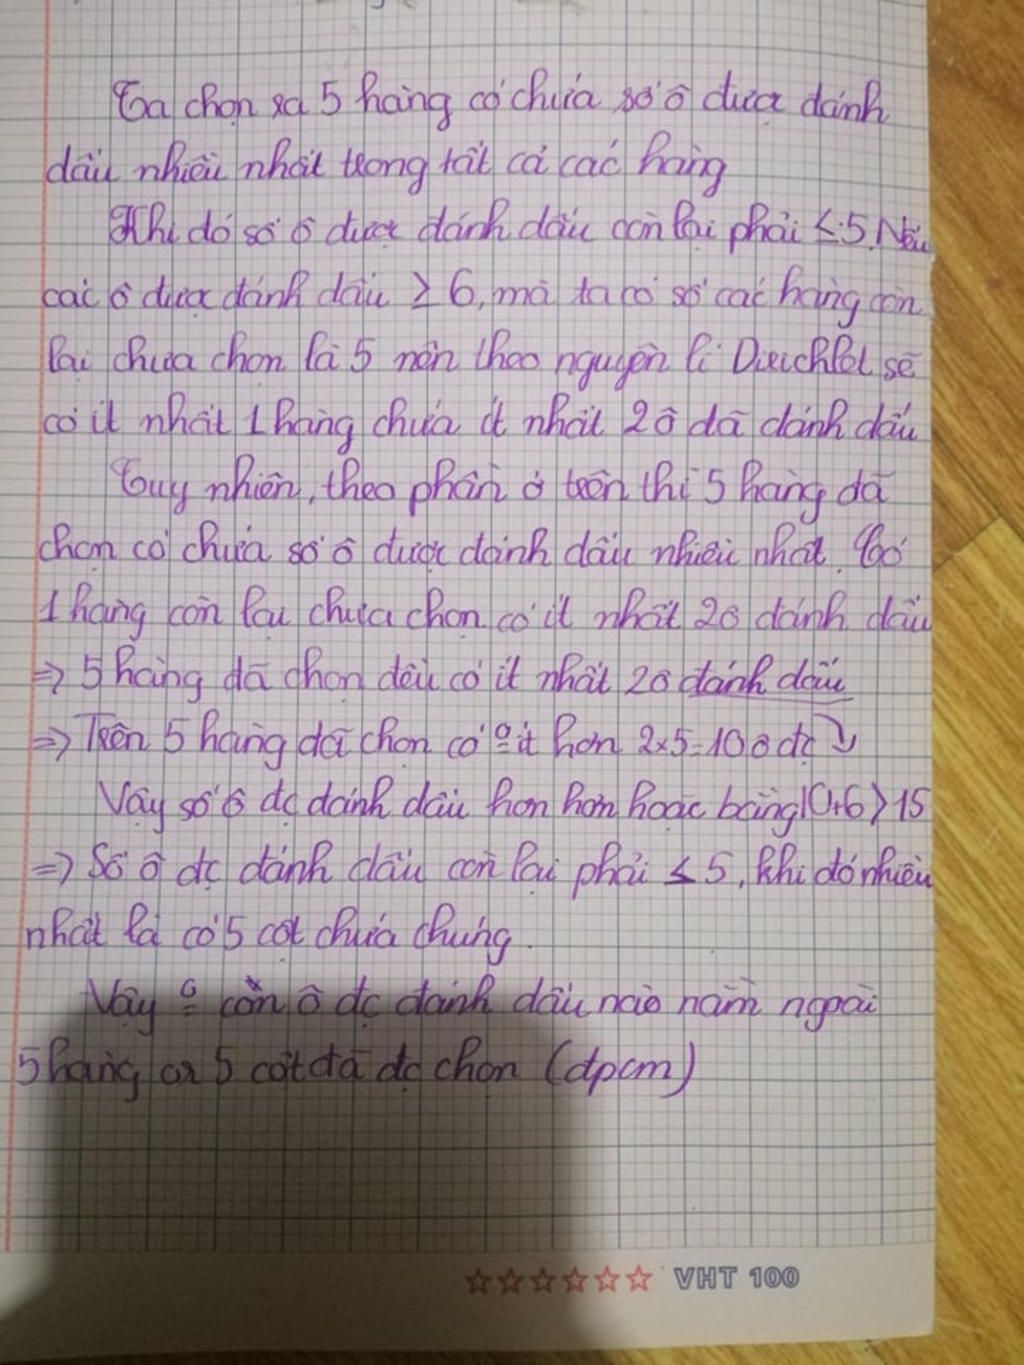 Ta chọn ra 5 hàng có chứa số ô được đánh
dấu nhiều nhất trong tất cả các hàng
Khi đó số ô được đánh dấu còn lại phải ≤ 5. Nếu
các ô được đánh dấu ≥ 6, mà ta có số các hàng còn
lại chưa chọn là 5 nên theo nguyên lí Dirichlet sẽ
có ít nhất 1 hàng chứa ít nhất 2 ô đã đánh dấu
Tuy nhiên, theo phần ở trên thì 5 hàng đã
chọn có chứa số ô được đánh dấu nhiều nhất. Có
1 hàng còn lại chưa chọn có ít nhất 2ô đánh dấu
=> 5 hàng đã chọn đều có ít nhất 2ô đánh dấu
=> Trên 5 hàng đã chọn có ít hơn 2x5=10 ô đc
Vậy số ô đc đánh dấu hơn hơn hoặc bằng 10+6 > 15
=> Số ô đc đánh dấu còn lại phải ≤ 5, khi đó nhiều
nhất là có 5 cột chứa chúng.
Vậy còn ô đc đánh dấu nào nằm ngoài
5 hàng or 5 cột đã đc chọn (đpcm)
VHT 100